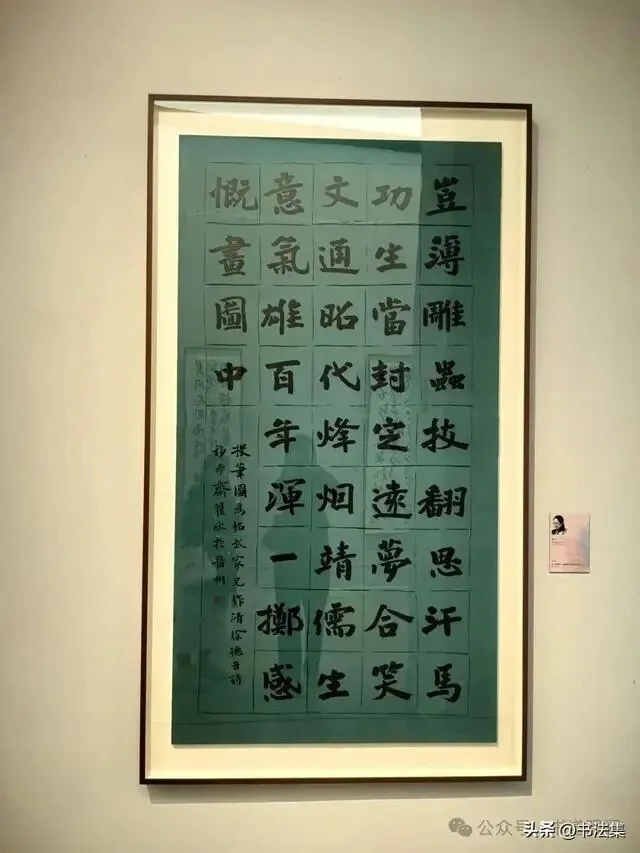 豈薄雕蟲技翻思汗馬
功生當封定遠夢合笑
文通昭代烽烟靖儒生
意氣雄百年渾一擲感
慨畫圖中
投筆圖為家兄作清徐德音詩
移步齋於晉州
公众号
头条 @书法集